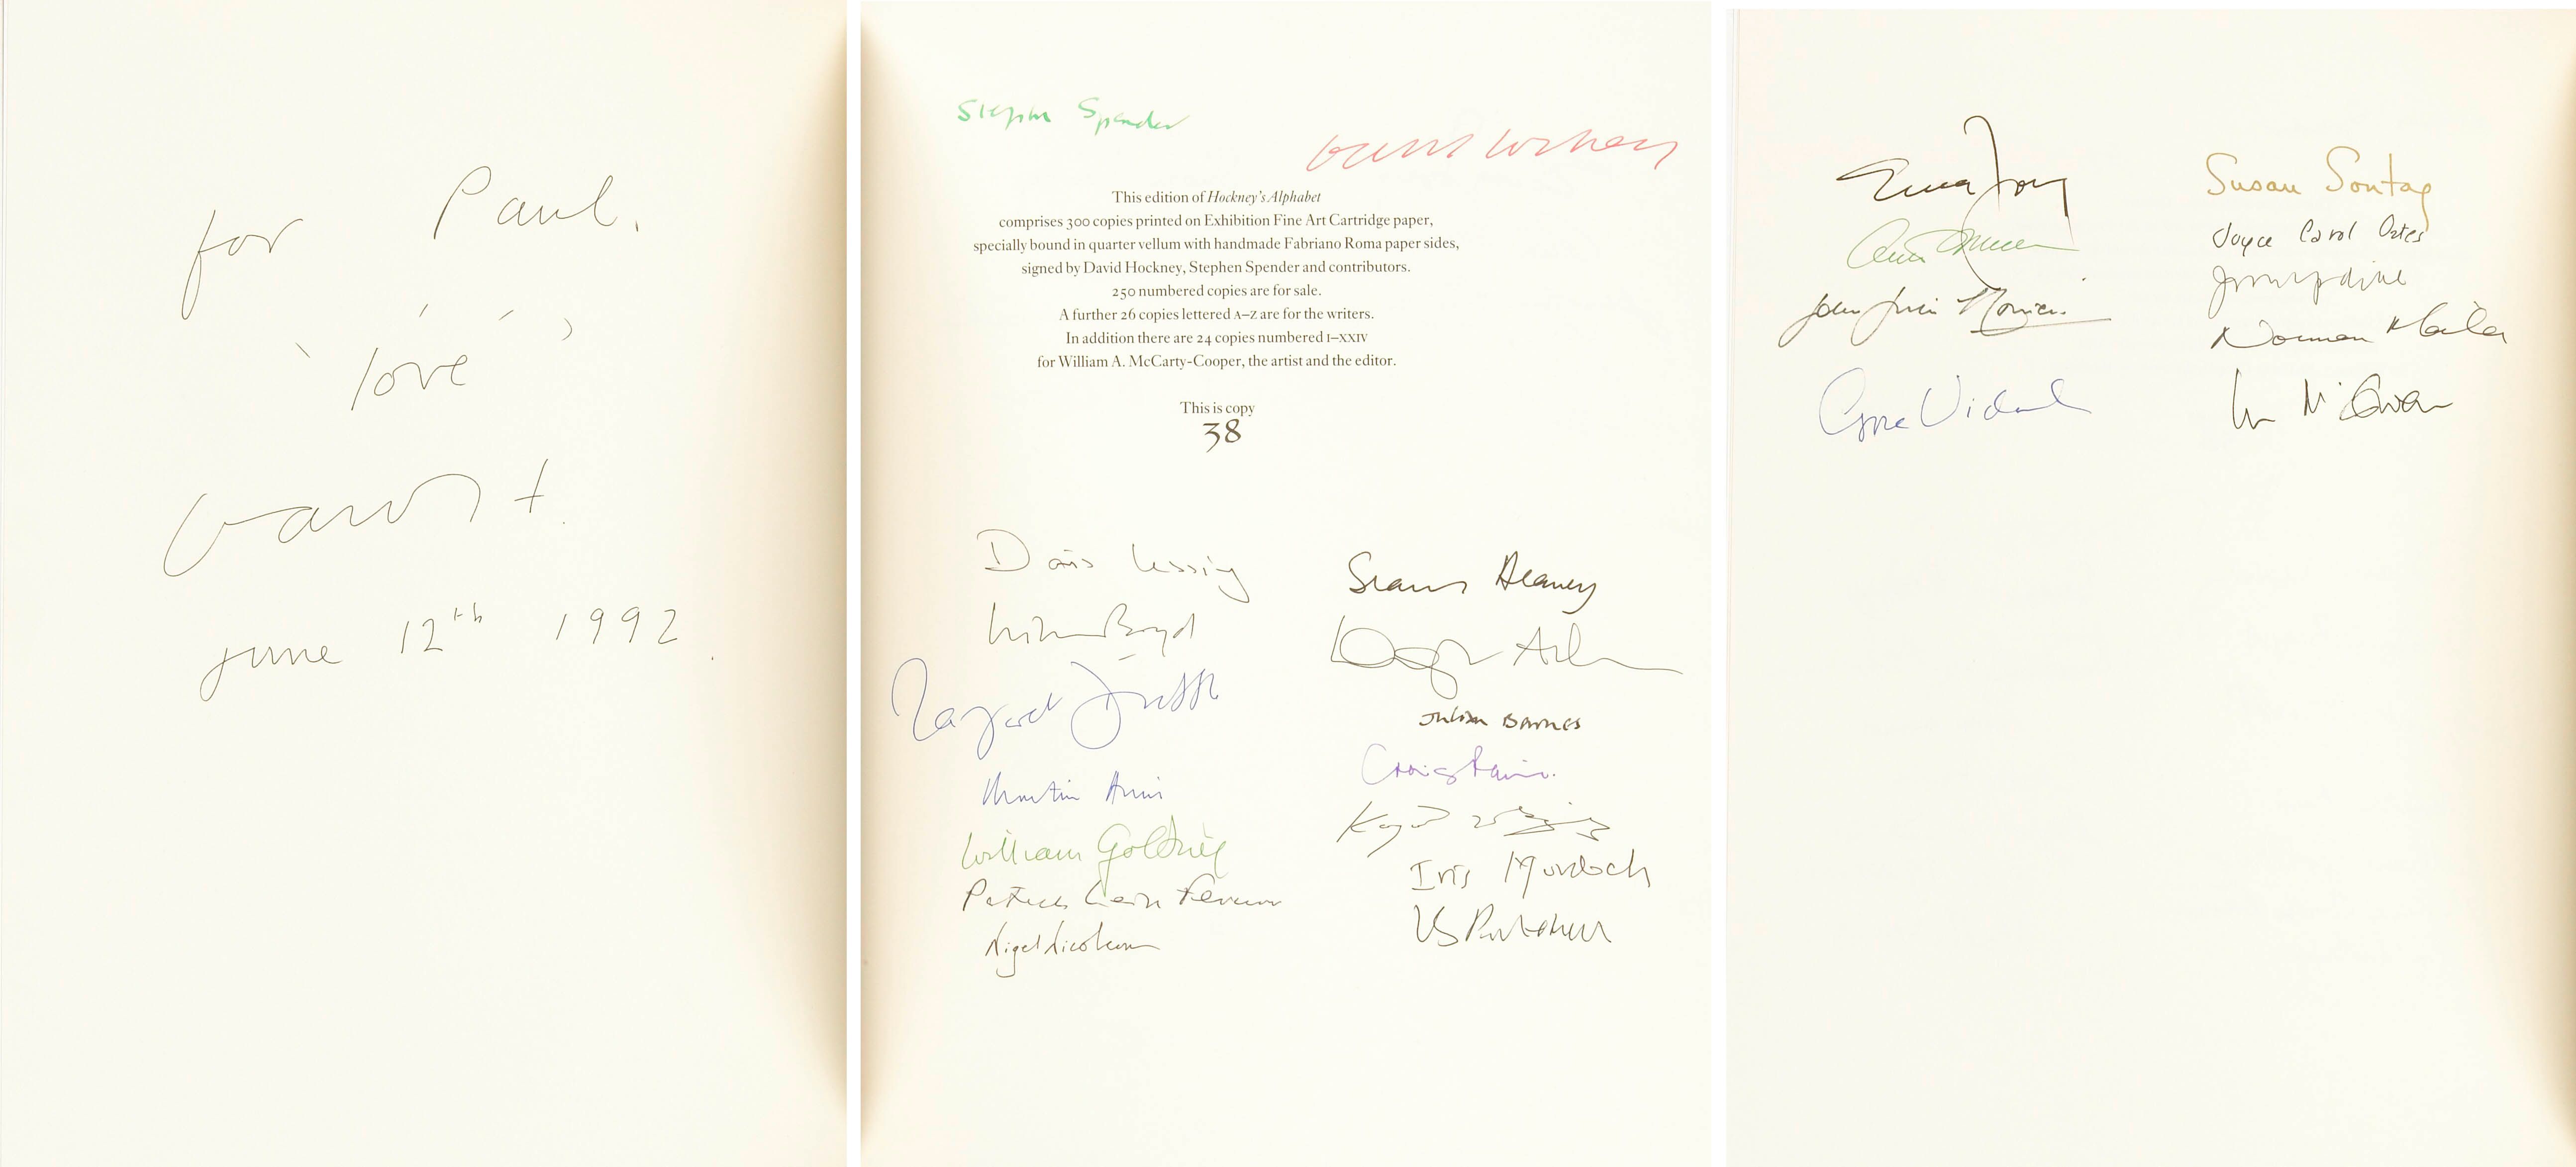 for Paul.
' love '
David H.
June 12th 1992.
Stephen Spender
David Hockney
This edition of Hockney's Alphabet
comprises 300 copies printed on Exhibition Fine Art Cartridge paper,
specially bound in quarter vellum with handmade Fabriano Roma paper sides,
signed by David Hockney, Stephen Spender and contributors.
250 numbered copies are for sale.
A further 26 copies lettered A–Z are for the writers.
In addition there are 24 copies numbered I–XXIV
for William A. McCarty-Cooper, the artist and the editor.
This is copy
38
Doris Lessing
William Boyd
Margaret Drabble
Martin Amis
William Golding
Patrick Leigh Fermor
Nigel Nicolson
Seamus Heaney
Douglas Adams
Julian Barnes
Craig Raine.
Kazuo Ishiguro
Iris Murdoch
VS Pritchett
Erica Jong
John Julius Norwich
Gore Vidal
Susan Sontag
Joyce Carol Oates
Norman Mailer
Ian McEwan